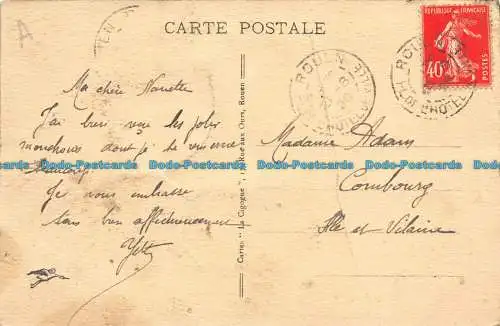 CARTE POSTALE
Ma chère Nanette
J'ai bien reçu les jolis
mouchoirs dont je te remercie
beaucoup
Je vous embrasse
tous bien affectueusement
Yette
Cartes "La Cigogne", Rue aux Ours, Rouen
Madame Adam
Combourg
Ille et Vilaine
ROUEN
HOTEL DE VILLE
ROUEN
HOTEL
REPUBLIQUE FRANÇAISE
40c
Dodo-Postcards Dodo-Postcards Dodo-Postcards Dodo-Postcards Dodo-Postcards